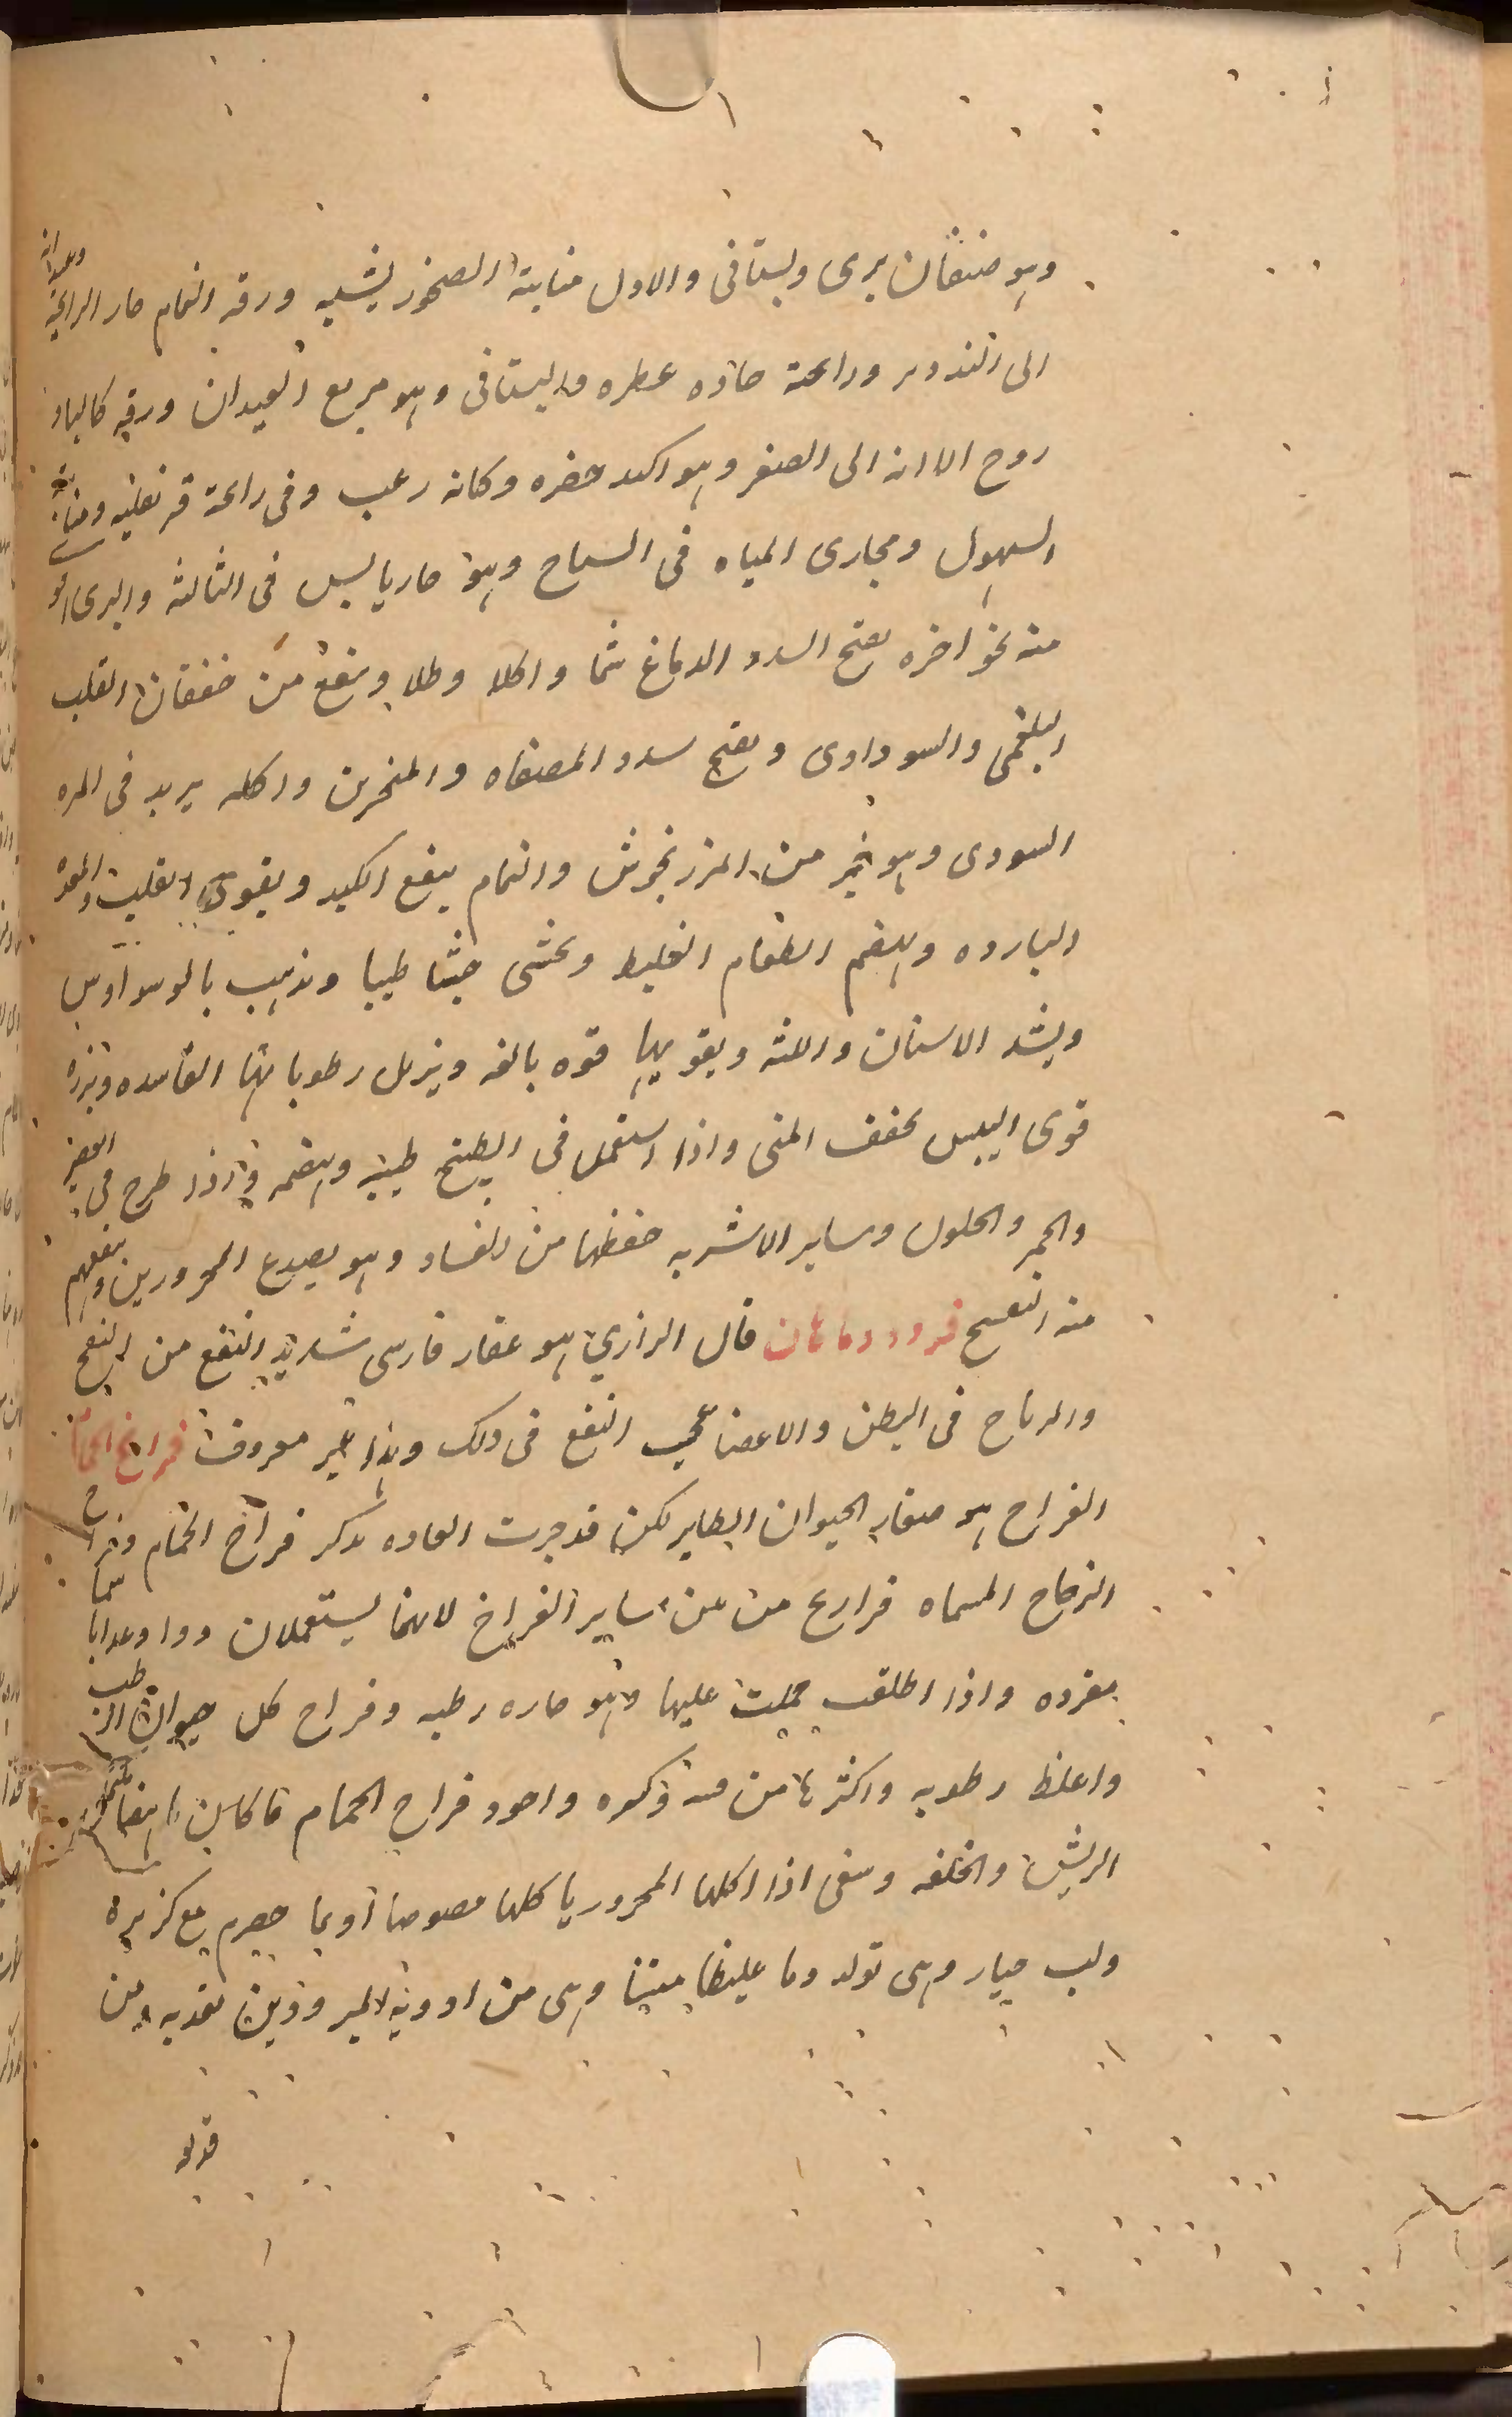 وهو صنفان بری وبستانی والاول منابته الصخور یشبه ورقه النمام حار الرائحة وعیدانه
الی التدویر ورائحة حاده عطره والبستانی وهو مربع العیدان ورقه کالباد
روج الا انه الی الصغر وهو اکمد خضره وکانه زغب وفی رائحة قرنفلیه ومنابته
السهول ومجاری المیاه فی السباخ وهو حار یابس فی الثالثه والبری اقوی
منه نحو اخره یفتح السدد الدماغ شما واکلا وطلا وینفع من خفقان القلب
البلغمی والسوداوی ویفتح سدد المصفاه والمنخرین واکله یزید فی المره
السودی وهو خیر من المرزنجوش والنمام ینفع الکبد ویقوی القلب والمعده
البارده ویهضم الطعام الغلیظ ویجشی جشا طیبا ویذهب بالوسواوس
ویشد الاسنان واللثه ویقویها قوه بالغه ویزیل رطوباتها الفاسده وبزره
قوی الیبس یجفف المنی واذا استعمل فی الطبیخ طیبه وهضمه واذا طرح فی العصیر
والخمر والخلول وسایر الاشربه حفظها من الفساد وهو یصدع المحرورین وینفعهم
منه البنفسج فرودودماهان قال الرازی هو عقار فارسی شدید النفع من النفخ
والریاح فی البطن والاعضا عجیب النفع فی ذلک وهذا غیر معروف فراخ الحمام
الفراخ هو صغار الحیوان الطایر لکن قد جرت العاده بذکر فراخ الحمام وفراخ
الدجاج المسماه فراریج من بین سایر الفراخ لانهما یستعملان دوا وغدا
مفرده واذا اطلقت حملت علیها وهو حاره رطبه وفراخ کل حیوان ارطب
واغلظ رطوبه واکثرها من مسنه ذکوره واجود فراخ الحمام ما کان
الریش والخلقه وینبغی اذا اکلها المحرور یاکلها مصوصا او بما حصرم مع کزبره
ولب خیار وهی تولد دما غلیظا متینا وهی من ادویه المبرودین تغذیه ومن